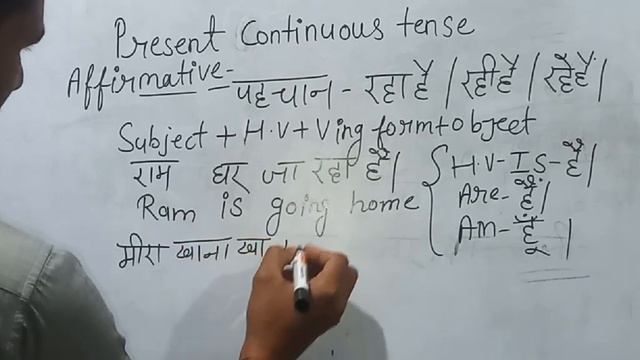 Present Continuous tense
Affirmative- पहचान - रहा है / रही है / रहे हैं /
Subject + H.V + Ving form + object
राम घर जा रहा है।
Ram is going home
मीरा खाना खा
H.V - IS - है।
Are - हैं।
Am - हूँ।